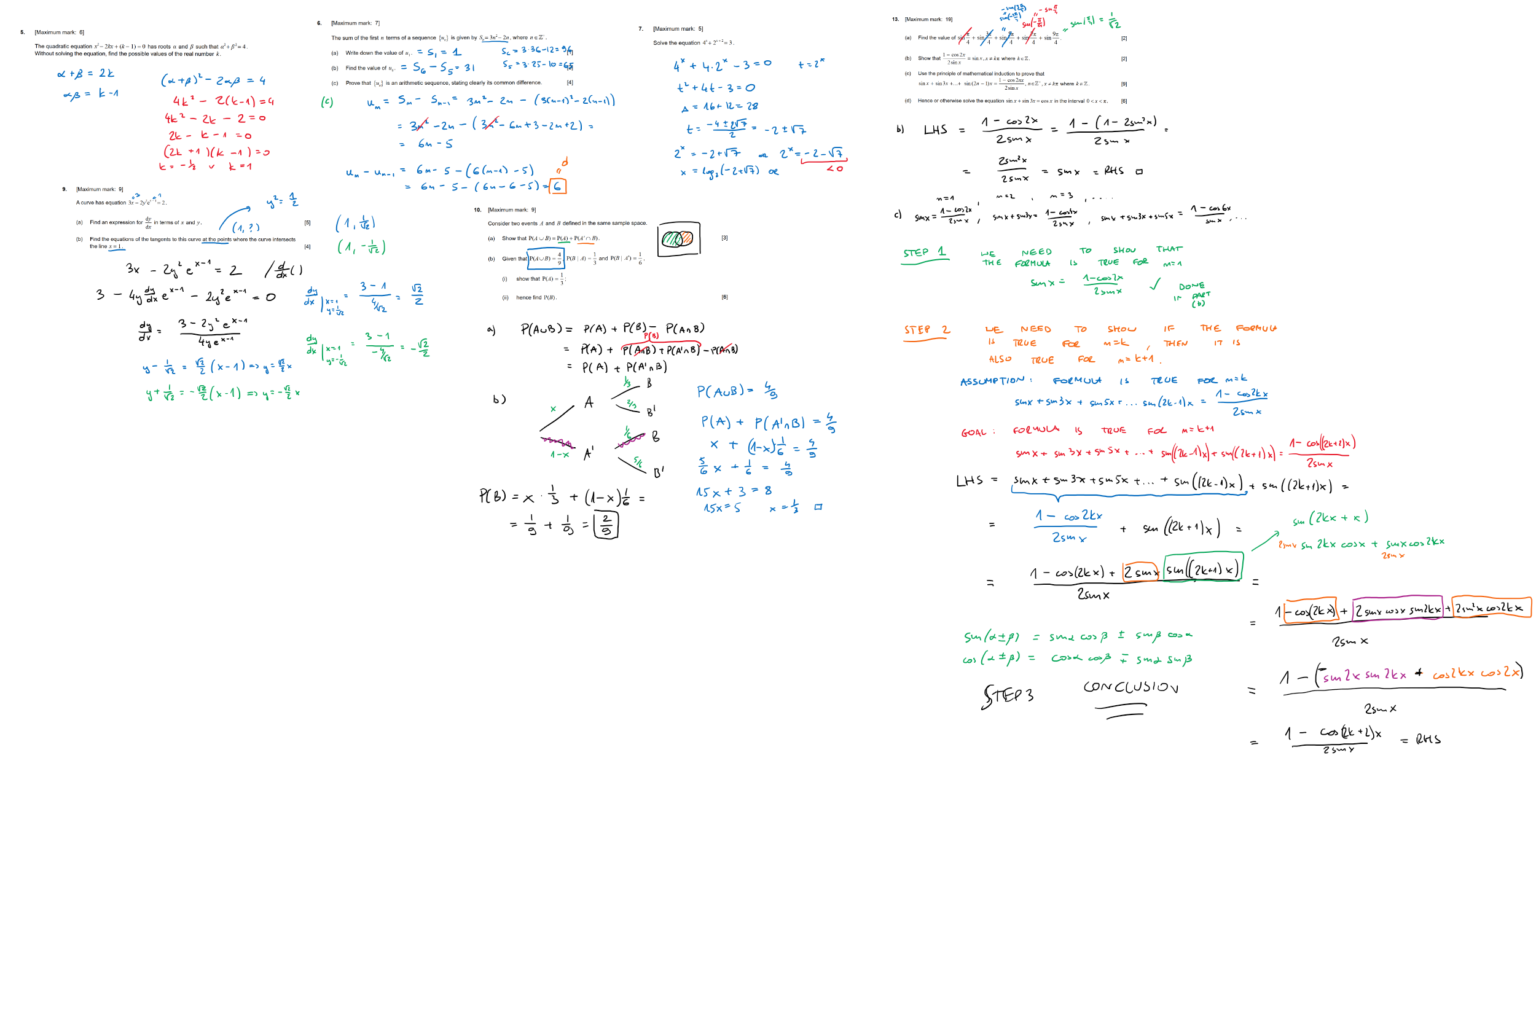 5. [Maximum mark: 6]
The quadratic equation x² − 2kx + (k − 1) = 0 has roots α and β such that α² + β² = 4.
Without solving the equation, find the possible values of the real number k.
α+β = 2k
αβ = k-1
(α+β)² - 2αβ = 4
4k² - 2(k-1)=4
4k² - 2k - 2=0
2k - k - 1 =0
(2k +1)(k -1)=0
k = -½ v k=1
6. [Maximum mark: 7]
The sum of the first n terms of a sequence {uₙ} is given by Sₙ = 3n² − 2n, where n ∈ ℤ⁺.
(a) Write down the value of u₁. = S₁ = 1
S₆ = 3·36-12 = 96
(b) Find the value of u₆. = S₆ - S₅ = 31
S₅ = 3·25-10 = 65
(c) Prove that {uₙ} is an arithmetic sequence, stating clearly its common difference. [4]
(c) uₙ = Sₙ - Sₙ₋₁ = 3n² - 2n - (3(n-1)² - 2(n-1))
= 3n² - 2n - (3n² - 6n + 3 - 2n + 2) =
= 6n - 5
uₙ - uₙ₋₁ = 6n - 5 - (6(n-1) - 5)
= 6n - 5 - (6n - 6 - 5) = 6
d
7. [Maximum mark: 5]
Solve the equation 4ˣ + 2ˣ⁺² = 3.
4ˣ + 4·2ˣ - 3 = 0 t = 2ˣ
t² + 4t - 3 = 0
Δ = 16 + 12 = 28
t = (-4 ± 2√7)/2 = -2 ± √7
2ˣ = -2+√7 or 2ˣ = -2-√7
x = log₂(-2+√7) or <0
9. [Maximum mark: 9]
A curve has equation 3x − 2y²eˣ⁻¹ = 2.
(a) Find an expression for dy/dx in terms of x and y. [5]
(b) Find the equations of the tangents to this curve at the points where the curve intersects
the line x = 1. [4]
(1, ?)
y² = 1/2
(1, 1/√2)
(1, -1/√2)
3x - 2y² eˣ⁻¹ = 2 / d/dx ()
3 - 4y dy/dx eˣ⁻¹ - 2y² eˣ⁻¹ = 0
dy/dx = (3 - 2y² eˣ⁻¹)/(4y eˣ⁻¹)
dy/dx | x=1 y=1/√2 = (3-1)/(4/√2) = √2/2
dy/dx | x=1 y=-1/√2 = (3-1)/(-4/√2) = -√2/2
y - 1/√2 = √2/2 (x-1) => y = √2/2 x
y + 1/√2 = -√2/2 (x-1) => y = -√2/2 x
10. [Maximum mark: 9]
Consider two events A and B defined in the same sample space.
(a) Show that P(A ∪ B) = P(A) + P(A′ ∩ B). [3]
(b) Given that P(A ∪ B) = 4/9, P(B | A) = 1/3 and P(B | A′) = 1/6,
(i) show that P(A) = 1/3;
(ii) hence find P(B). [6]
a) P(A∪B) = P(A) + P(B) - P(A∩B)
P(B)
= P(A) + P(A∩B) + P(A'∩B) - P(A∩B)
= P(A) + P(A'∩B)
b)
x A 1/3 B
2/3 B'
1-x A' 1/6 B
5/6 B'
P(A∪B) = 4/9
P(A) + P(A'∩B) = 4/9
x + (1-x) 1/6 = 4/9
5/6 x + 1/6 = 4/9
15x + 3 = 8
15x = 5 x = 1/3 □
P(B) = x · 1/3 + (1-x) 1/6 =
= 1/9 + 1/9 = 2/9
13. [Maximum mark: 19]
(a) Find the value of sin π/4 + sin 3π/4 + sin 5π/4 + sin 7π/4 + sin 9π/4. [2]
sin(π/4) = 1/√2
(b) Show that (1 − cos 2x)/(2 sin x) ≡ sin x, x ≠ kπ where k ∈ ℤ. [2]
(c) Use the principle of mathematical induction to prove that
sin x + sin 3x + ... + sin(2n − 1)x = (1 − cos 2nx)/(2 sin x), n ∈ ℤ⁺, x ≠ kπ where k ∈ ℤ. [9]
(d) Hence or otherwise solve the equation sin x + sin 3x = cos x in the interval 0 < x < π. [6]
b) LHS = (1 - cos2x)/(2sinx) = (1 - (1 - 2sin²x))/(2sinx) =
= 2sin²x/(2sinx) = sinx = RHS □
n=1 , n=2 , n=3 , ....
c) sinx = (1-cos2x)/(2sinx) , sinx + sin3x = (1-cos4x)/(2sinx) , sinx + sin3x + sin5x = (1-cos6x)/(sinx) ....
STEP 1 WE NEED TO SHOW THAT
THE FORMULA IS TRUE FOR n=1
sinx = (1-cos2x)/(2sinx) ✓ DONE
IN PART
(b)
STEP 2 WE NEED TO SHOW IF THE FORMULA
IS TRUE FOR n=k , THEN IT IS
ALSO TRUE FOR n=k+1.
ASSUMPTION: FORMULA IS TRUE FOR n=k
sinx + sin3x + sin5x + ... sin(2k-1)x = (1 - cos2kx)/(2sinx)
GOAL: FORMULA IS TRUE FOR n=k+1
sinx + sin3x + sin5x + ... + sin((2k-1)x) + sin((2k+1)x) = (1 - cos((2k+2)x))/(2sinx)
LHS = sinx + sin3x + sin5x + ... + sin((2k-1)x) + sin((2k+1)x) =
= (1 - cos2kx)/(2sinx) + sin((2k+1)x) =
sin(2kx + x)
2sinx sin2kx cosx + sinx cos2kx
2sinx
= (1 - cos(2kx) + 2sinx sin((2k+1)x))/(2sinx) =
= (1 - cos(2kx) + 2sinx cosx sin2kx + 2sin²x cos2kx)/(2sinx)
sin(α±β) = sinα cosβ ± sinβ cosα
cos(α±β) = cosα cosβ ∓ sinα sinβ
= (1 - (-sin2x sin2kx + cos2kx cos2x))/(2sinx)
STEP 3 CONCLUSION
= (1 - cos(2k+2)x)/(2sinx) = RHS